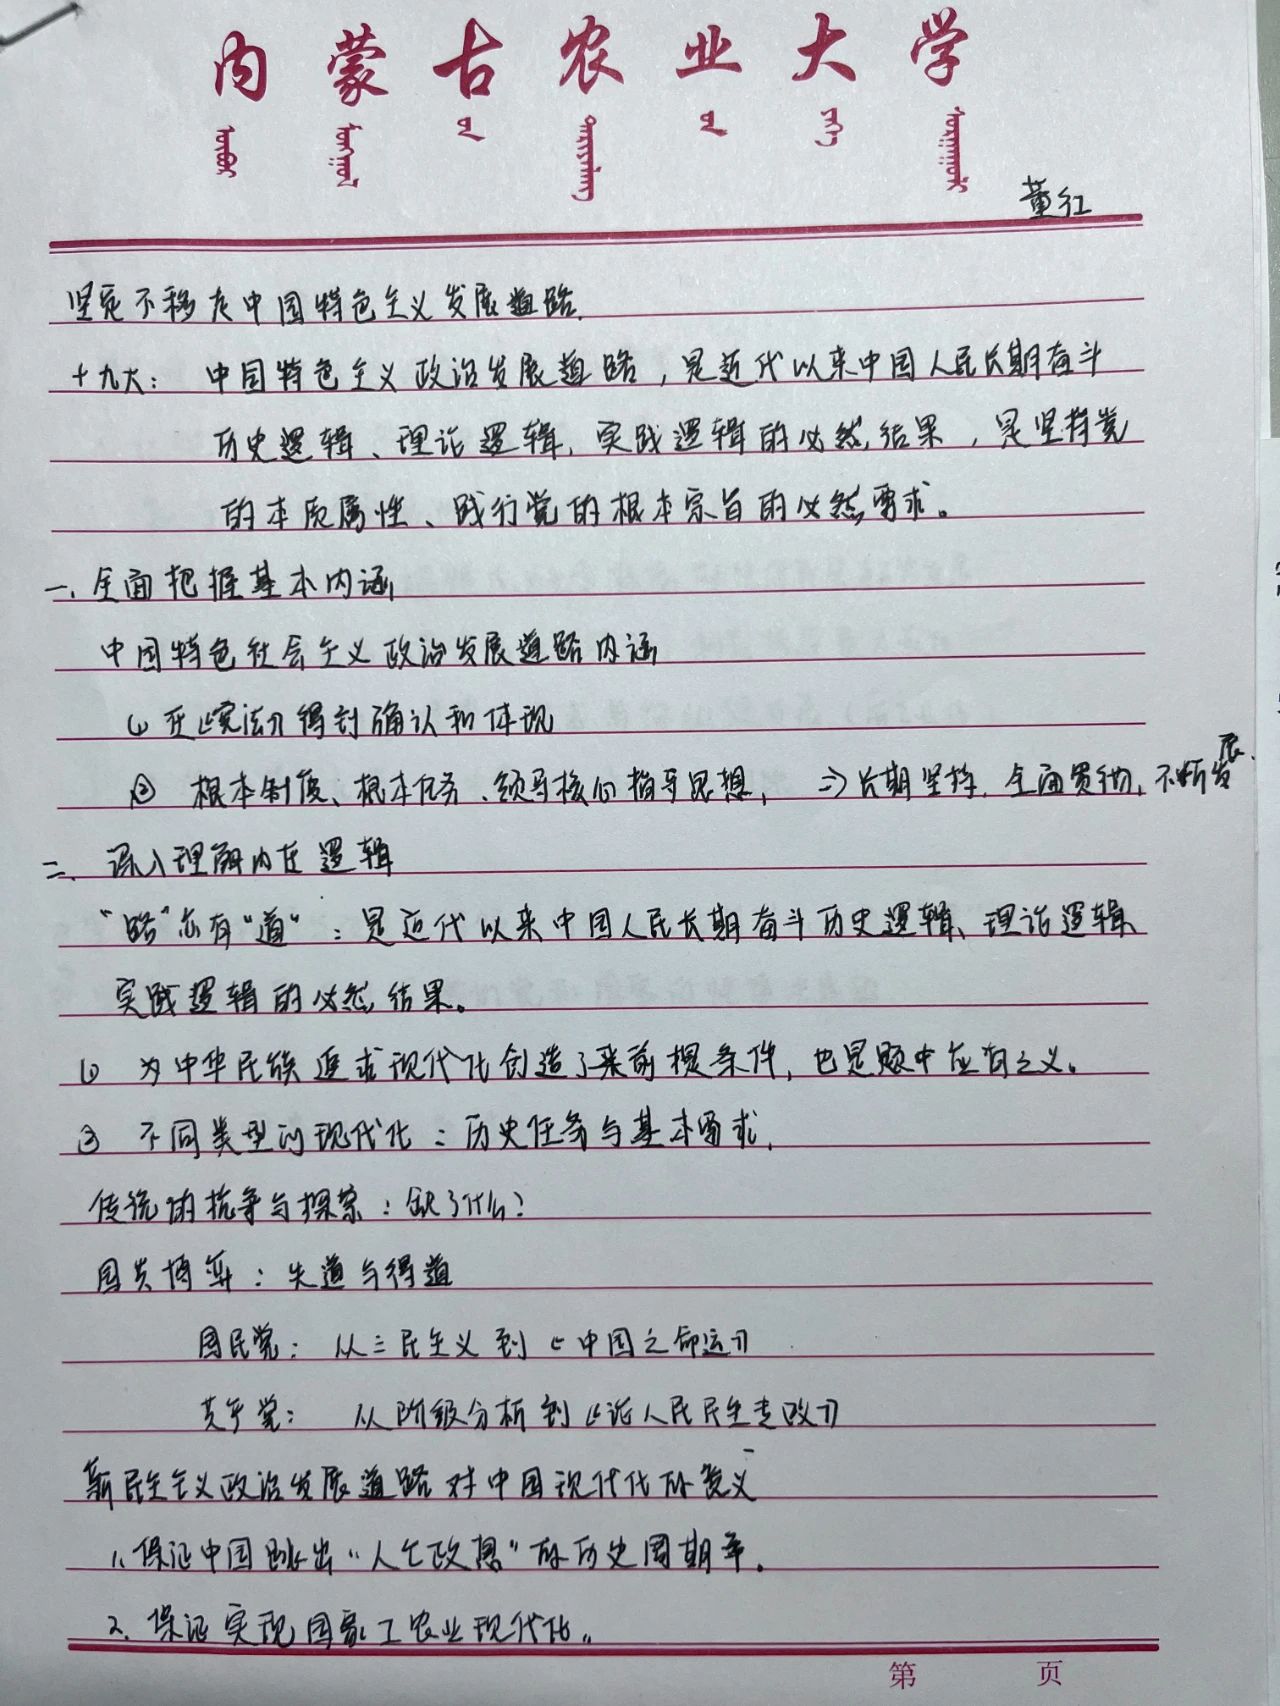 内蒙古农业大学
董红
坚定不移走中国特色主义发展道路.
十九大： 中国特色主义政治发展道路，是近代以来中国人民长期奋斗
历史逻辑、理论逻辑，实践逻辑的必然结果，是坚持党
的本质属性、践行党的根本宗旨的必然要求。
一. 全面把握基本内涵
中国特色社会主义政治发展道路内涵
① 在《宪法》得到确认和体现
② 根本制度、根本任务、领导核心指导思想， ⇒ 长期坚持，全面贯彻，不断发展.
二. 深入理解内在逻辑
“路”亦有“道”：是近代以来中国人民长期奋斗历史逻辑、理论逻辑、
实践逻辑的必然结果。
① 为中华民族追求现代化创造了来前提条件，也是题中应有之义。
② 不同类型的现代化：历史任务与基本要求，
传统的抗争与探索：缺了什么？
国共博弈：失道与得道
国民党： 从三民主义到《中国之命运》
共产党： 从阶级分析到《论人民民主专政》
新民主主义政治发展道路对中国现代化的意义
1. 保证中国跳出“人亡政息”的历史周期率。
2. 保证实现国家工农业现代化。
第 页